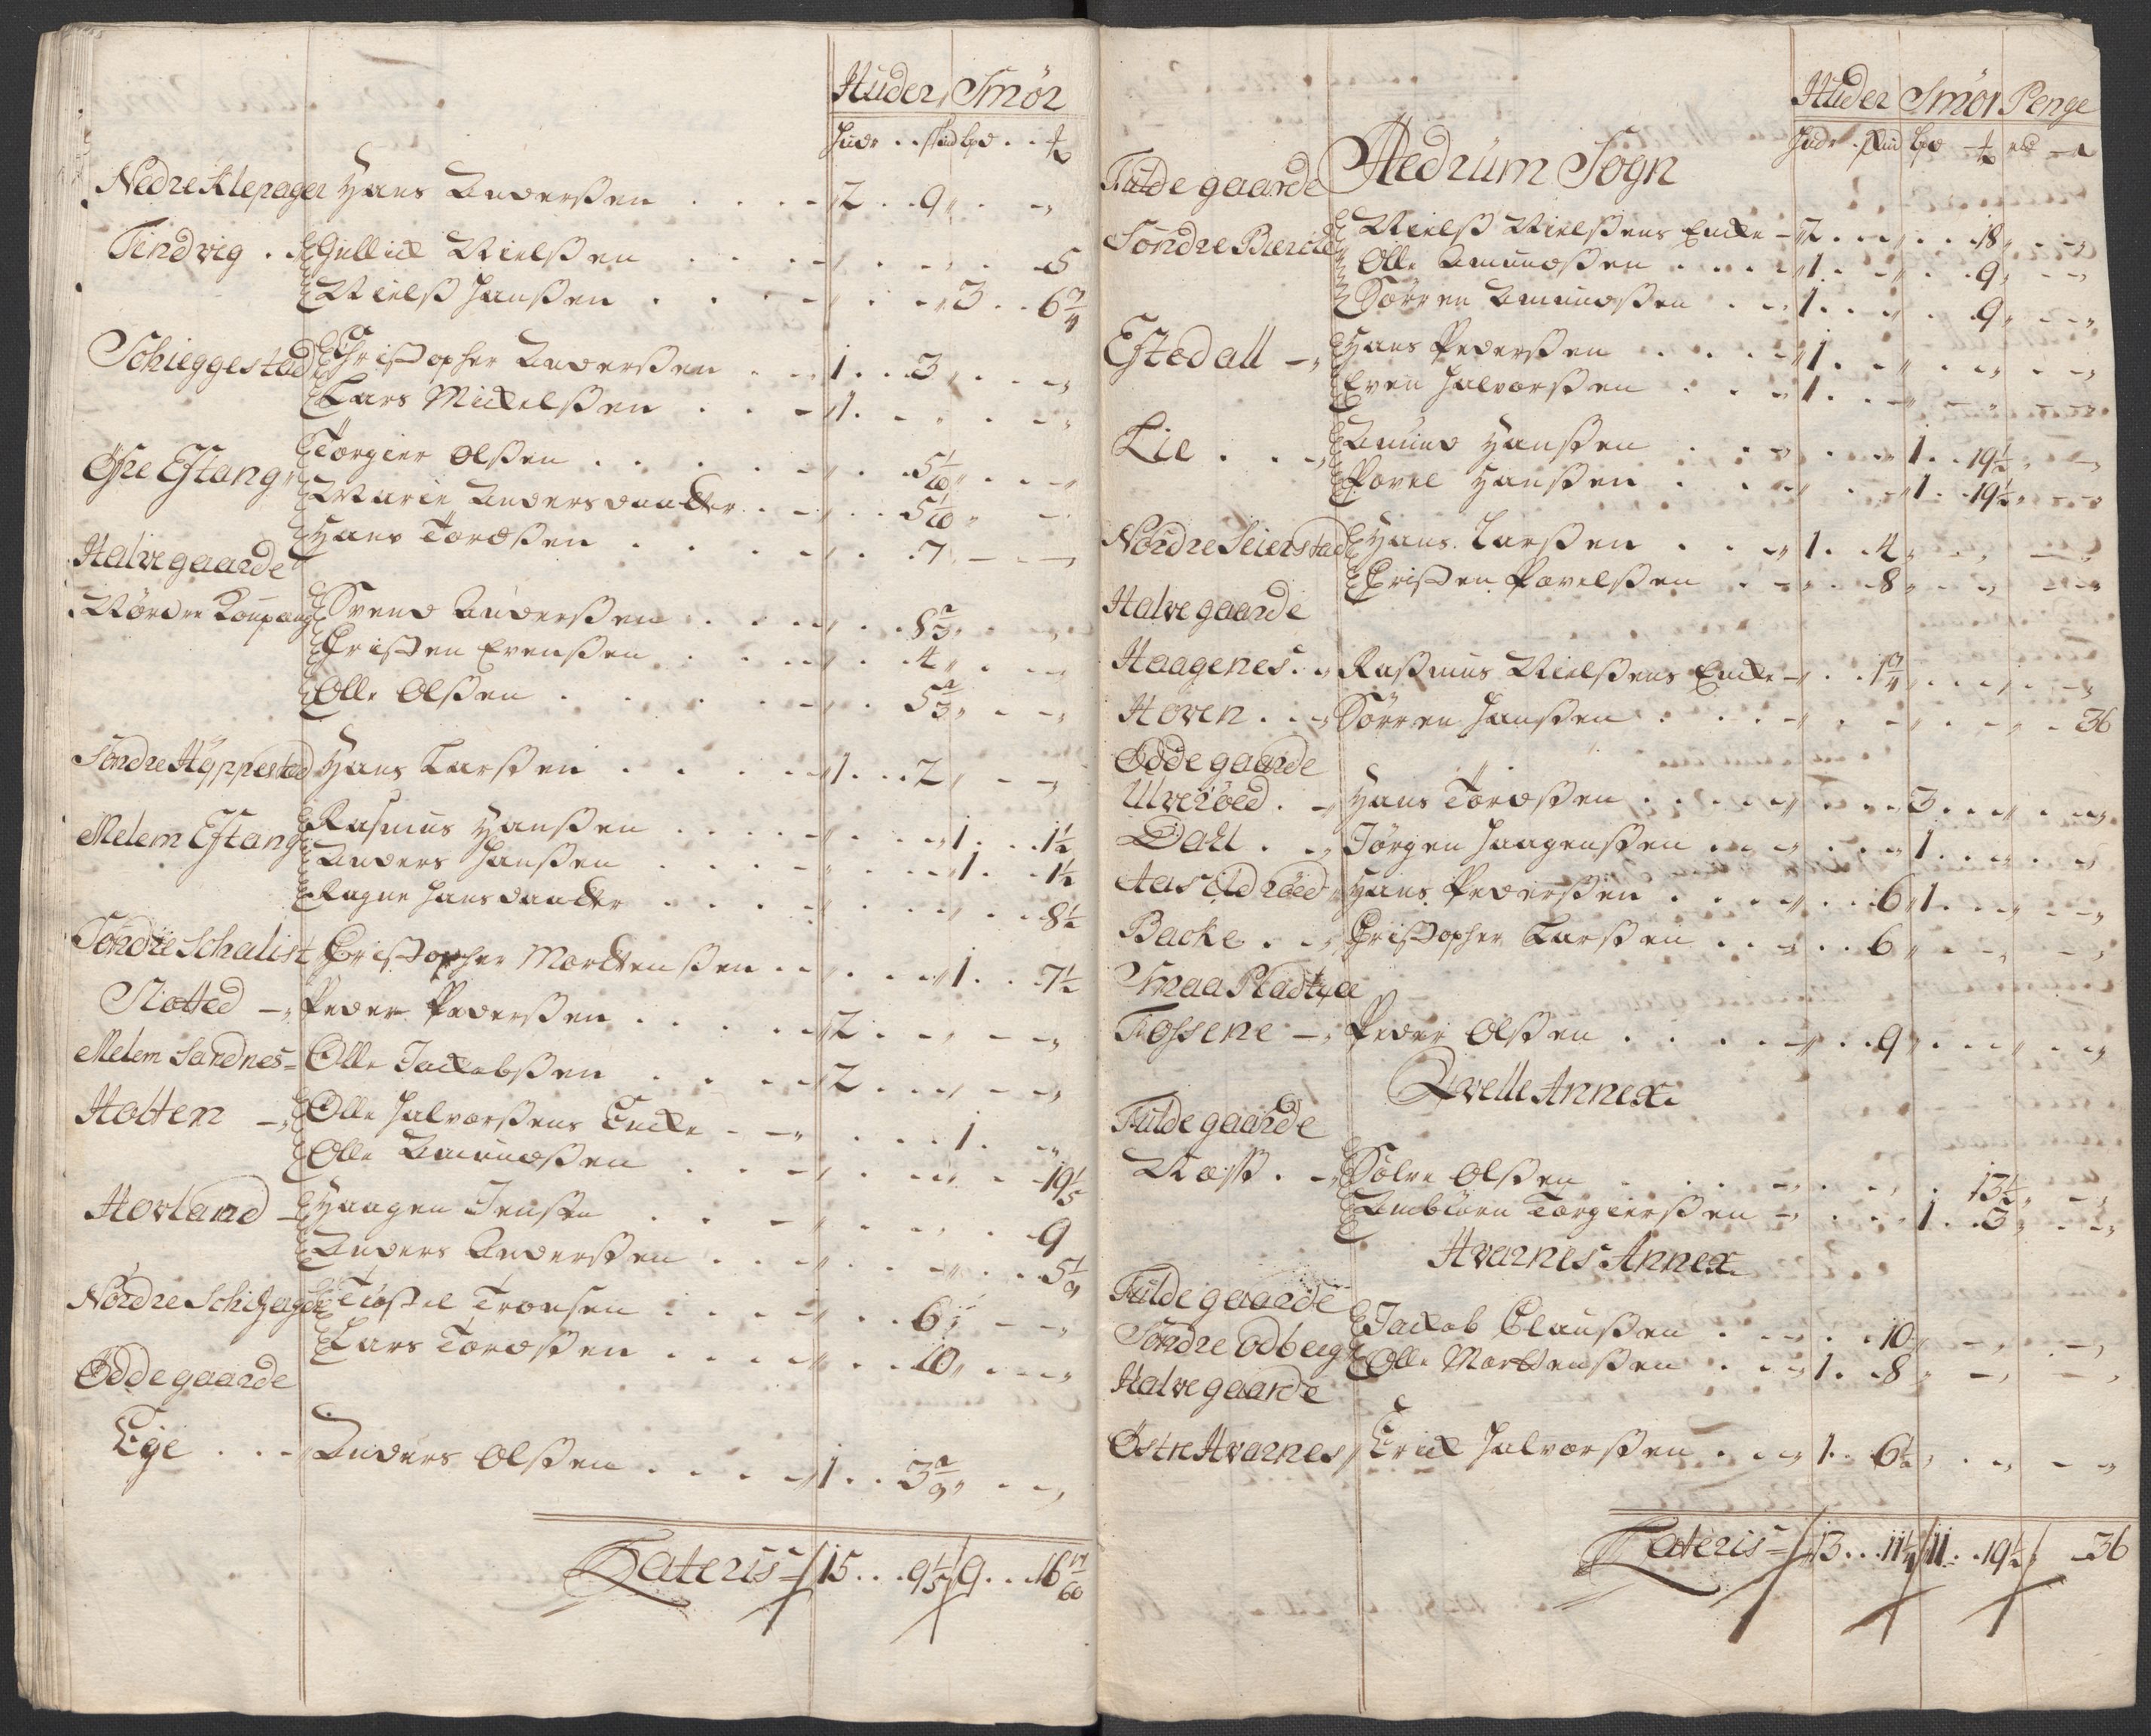 Huder Smör
Hude . . skind bpd . . ℔
Nedre Klepager Hans Anderßen . . . . 2 . . 9 „ . . „
Tendvig . . Gullick Nielßen . . . . 5
Nielß Hanßen . . . . „ 3 . . 6 3/4
Schieggestad Christopher Anderßen . . 1 . . 3 „ . . „
Lars Mickelßen . . . 1 . . „ . . „
Öfre Eftang Torgier Olßen . . . . . 5 1/10 „ . . „
Marie Andersdaatter . . . 5 1/10 „ . .
Hans Tordßen . . . . 7 „ . . „
Halve gaarde
Nordre Koupang Svend Anderßen . . . . 8 2/3 „ . . „
Christen Evenßen . . . . 4 „ . . „
Olle Olßen . . . . 5 2/3 „ . . „
Söndre Höppestad Hans Larßen . . . . 1 . . 2 „ . . „
Melem Eftang Rasmus Hanßen . . . . „ 1 . . 1 1/2
Anders Hanßen . . . . „ 1 . . 1 1/2
Ragne Hansdaatter . . . . 8 1/2
Söndre Schalist Christopher Mortenßen . . . „ 1 . . 7 1/2
Slotted — Peder Pederßen . . . . 2 . . „ . . „
Melem Sardnes = Olle Jackobßen . . . . 2 . . „ . . „
Holten — Olle Halvorßens Encke . . . 1 . . „
Olle Amundßen . . . . 19 1/5
Hovland — Haagen Jenßen . . . . 9
Anders Anderßen . . . . 5 1/9
Nordre Tiostel Tronsen . . . . 6 „ . . „
Lars Tordßen . . . . 10 „ . . „
Ödde gaarde
Ege . . . Anders Olßen . . . . 1 . . 3 2/9 „ . . „
Lateris = 15 . . 9 1/5 9 . . 16 17/60
Huder Smör Penge
Hude . skind bpd ℔ rd
Fulde gaarde Hedrum Sogn
Söndre Nielß Nielßens Encke — 2 . . „ . . 18 „ . . „
Olle Amundßen . . . . 1 . . „ . . 9 „ . . „
Sörren Amundßen . . 1 . . „ . . 9 „ . . „
Eftedall — Hans Pederßen . . . . 1 . . „ . . „ . . „
Even Halvorßen . . . 1 . . „ . . „ . . „
Lie . . . Amund Hanßen . . . . „ 1 . . 19 1/2 „ . . „
Povel Hanßen . . . . „ 1 . . 19 1/2 „ . . „
Nordre Seierstad Hans Larßen . . . 1 . . 4 „ . . „ . . „
Christen Povelßen . . . . 8 „ . . „ . . „
Halve gaarde
Haagenes . . Raßmus Nielßens Encke — . . 1 3/4 „ . . „ . . „
Hoven . . . Sörren Hanßen . . . . „ . . „ . . 36
Ödde gaarde
Ulveröed . — Hans Tordßen . . . . „ . . 3 . . „ . . „
Dall . . . Jörgen Haagenßen . . . . 1 . . „ . . „
Aasildröed Hans Pederßen . . . . 6 „ 1 . . „ . . „
Backe . . . Christopher Larßen . . . . 6 „ . . „ . . „
Smaa
Fossene — Peder Olßen . . . . 9 „ . . „ . . „
Qvelle Annex
Fulde gaarde
Næss . . Sölve Olßen . . . . 13 1/2 „ . . „
Anbiörn Torgierßen . . . 1 . . 3 „ . . „
Hvarnes Annex
Fulde gaarde
Söndre Odberg Jackob Claußen . . . 10 „ . . „ . . „
Olle Mortenßen . . . 1 . . 8 „ . . „ . . „
Halve gaarde
Östre Hvarnes Erick Halvorßen . . . 1 . . 6 1/2 „ . . „ . . „
Lateris = 13 . . 11 1/4 11 . . 19 1/2 „ 36